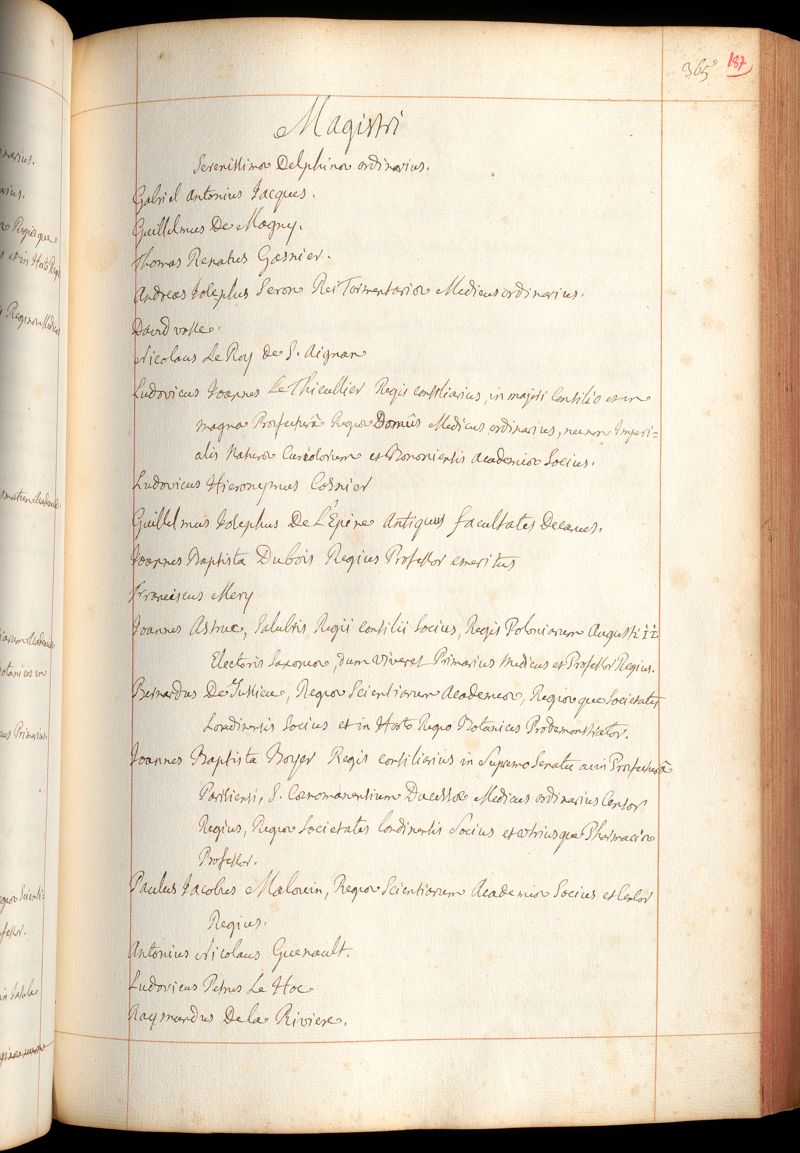 365
187
Magistri
Serenissimæ Delphinæ ordinarius.
Gabriel Antonius Jacques.
Guillelmus De Magny.
Thomas Renatus Gasnier.
Andreas Josephus Seron Rei Tormentariæ Medicus ordinarius.
David Vasse.
Nicolaus Le Roy de S. Aignan
Ludovicus Joannes Le Thieullier Regis consiliarius, in majori Consilio et in
magna Præfecturâ Regiæ Domûs Medicus ordinarius, necnon Imperi=
alis Naturæ Curiosorum et Bononiensis Academiæ Socius.
Ludovicus Hieronymus Cosnier
Guillelmus Josephus De L'Epine Antiquus facultatis Decanus.
Joannes Baptista Dubois Regius Professor emeritus
Franciscus Mery
Joannes Astruc, Salubris Regii consilii Socius, Regis Poloniarum Augusti ii.
Electoris Saxoniæ, dum viveret Primarius Medicus et Professor Regius.
Bernardus De Jussieu, Regiæ Scientiarum Academiæ, Regiæ que Societatis
Londinensis Socius et in Horto Regio Botanices Prodemonstrator.
Joannes Baptista Boyer Regis consiliarius in Supremo Senatu ac in Præfecturâ
Parisiensi, S. Cenomanensium Ducissæ Medicus ordinarius Censor
Regius, Regiæ Societatis Londinensis Socius et utriusque Pharmaciæ
Professor.
Paulus Jacobus Malouin, Regiæ Scientiarum Academiæ Socius et Censor
Regius.
Antonius Nicolaus Guenault.
Ludovicus Petrus Le Hoc
Raymundus De la Riviere.